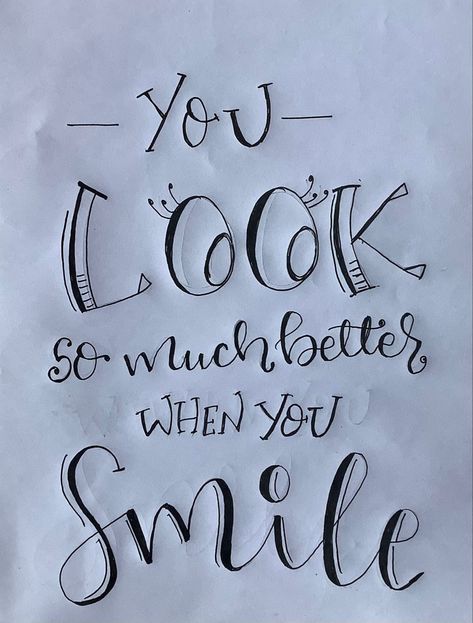 — YOU —
LOOK
so much better
WHEN YOU
Smile